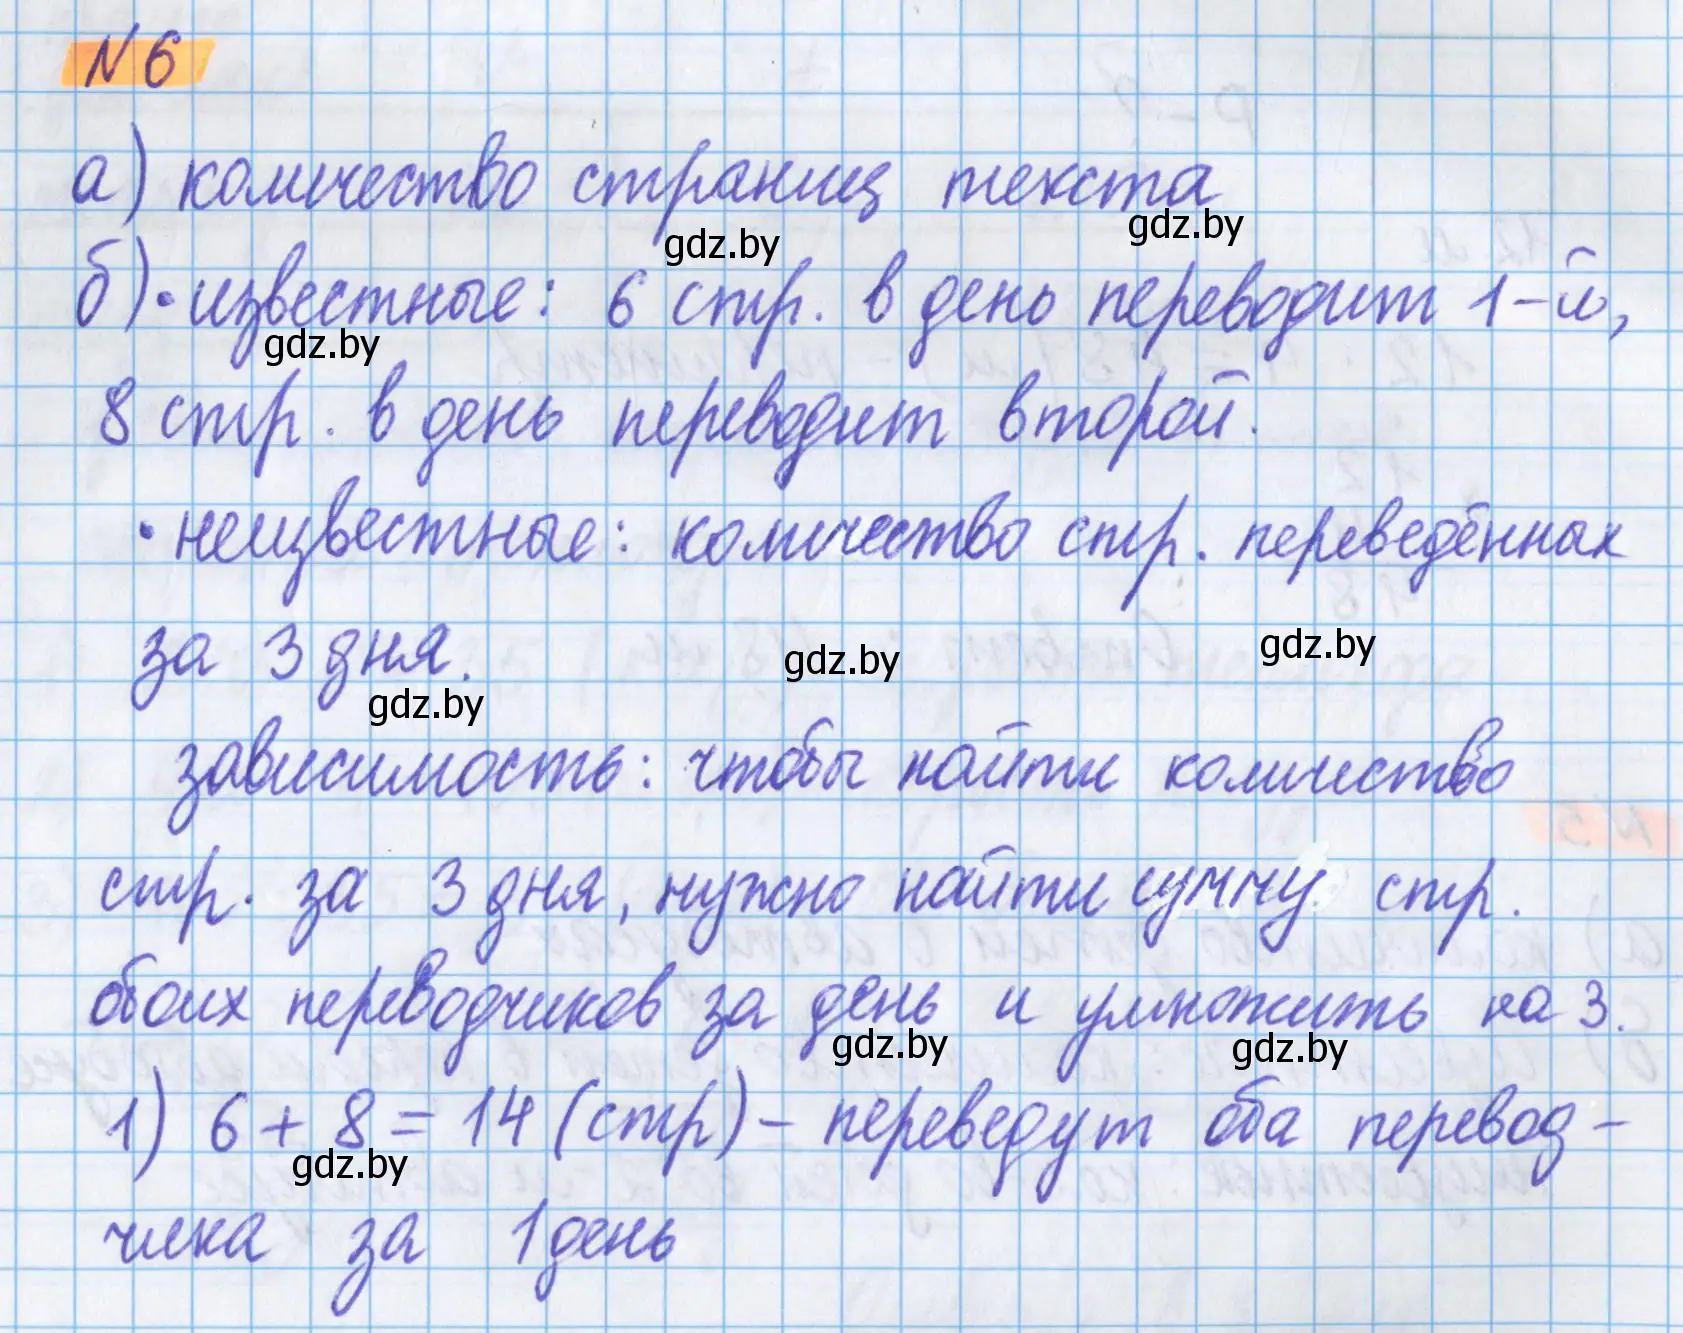 N 6
а) количество страниц текста
gdz.by
gdz.by
б) • известные: 6 стр. в день переводит 1-й,
gdz.by
8 стр. в день переводит второй.
• неизвестные: количество стр. переведённых
за 3 дня.
gdz.by
gdz.by
gdz.by
зависимость: чтобы найти количество
стр. за 3 дня, нужно найти сумму стр.
обоих переводчиков за день и умножить на 3.
gdz.by
gdz.by
1) 6 + 8 = 14 (стр) – переведут оба перевод-
gdz.by
чика за 1 день